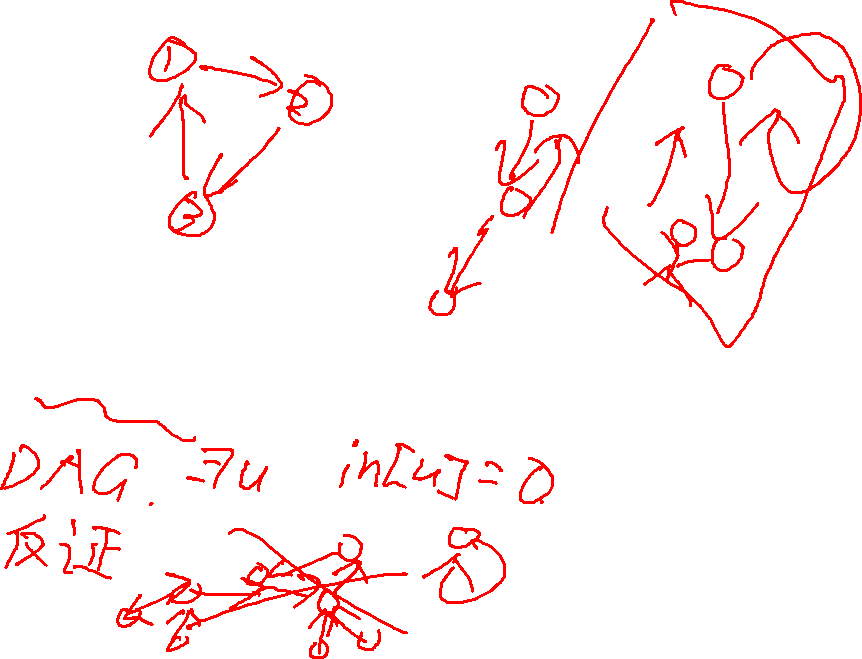 1
2
3
DAG. ∃u in[u]=0
反证